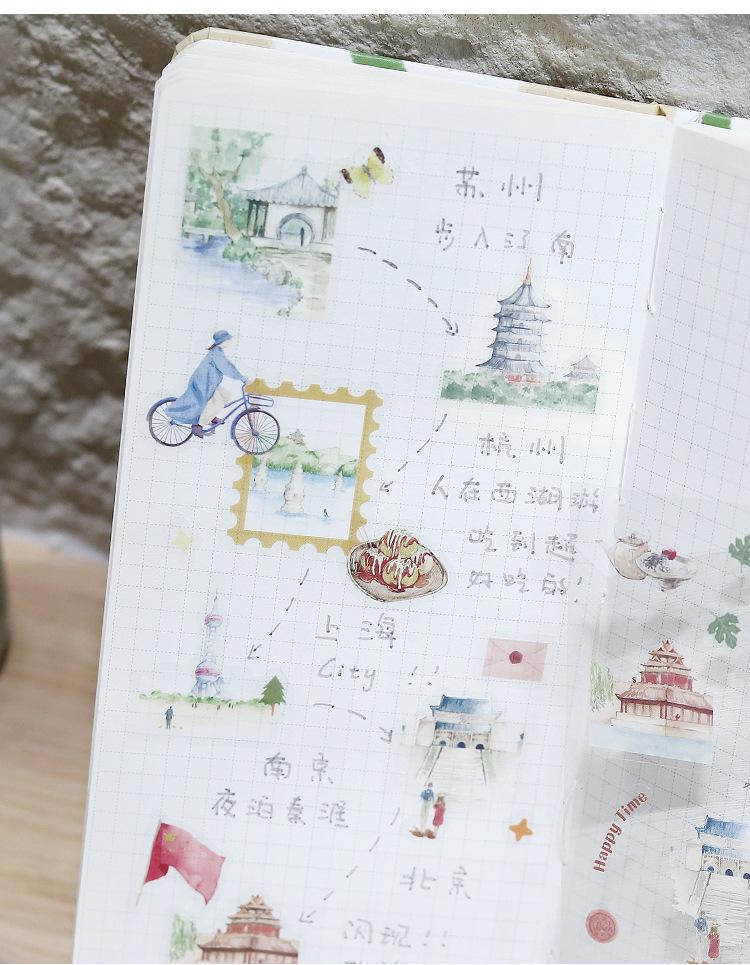 苏州
步入江南
杭州
人在西湖游
吃到超
好吃的!
上海
City !!
南京
夜泊秦淮
北京
闪现!!
Happy Time